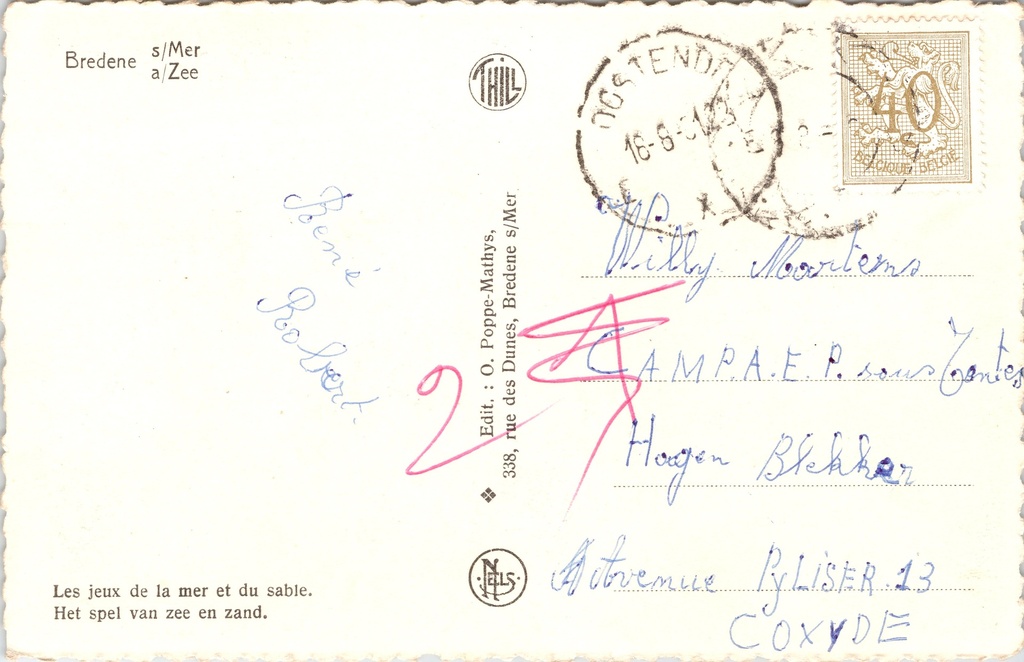 Bredene s/Mer
a/Zee
THILL
OOSTENDE
16-8-61 23
40
BELGIQUE BELGIE
René
Robert.
Edit. : O. Poppe-Mathys,
338, rue des Dunes, Bredene s/Mer
Willy Martens
CAMP. A. E. P. sous Tentes
Hagen Blekker
Avenue PyLISER 13
COXYDE
NELS
Les jeux de la mer et du sable.
Het spel van zee en zand.